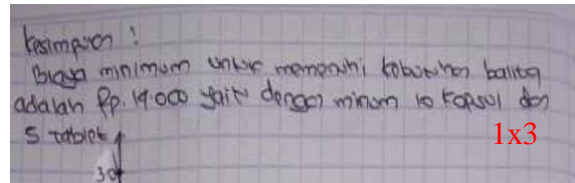 Kesimpulan :
Biaya minimum untuk memenuhi kebutuhan balita
adalah Rp. 14.000 yaitu dengan minum 10 Kapsul dan
5 tablet
1x3
30